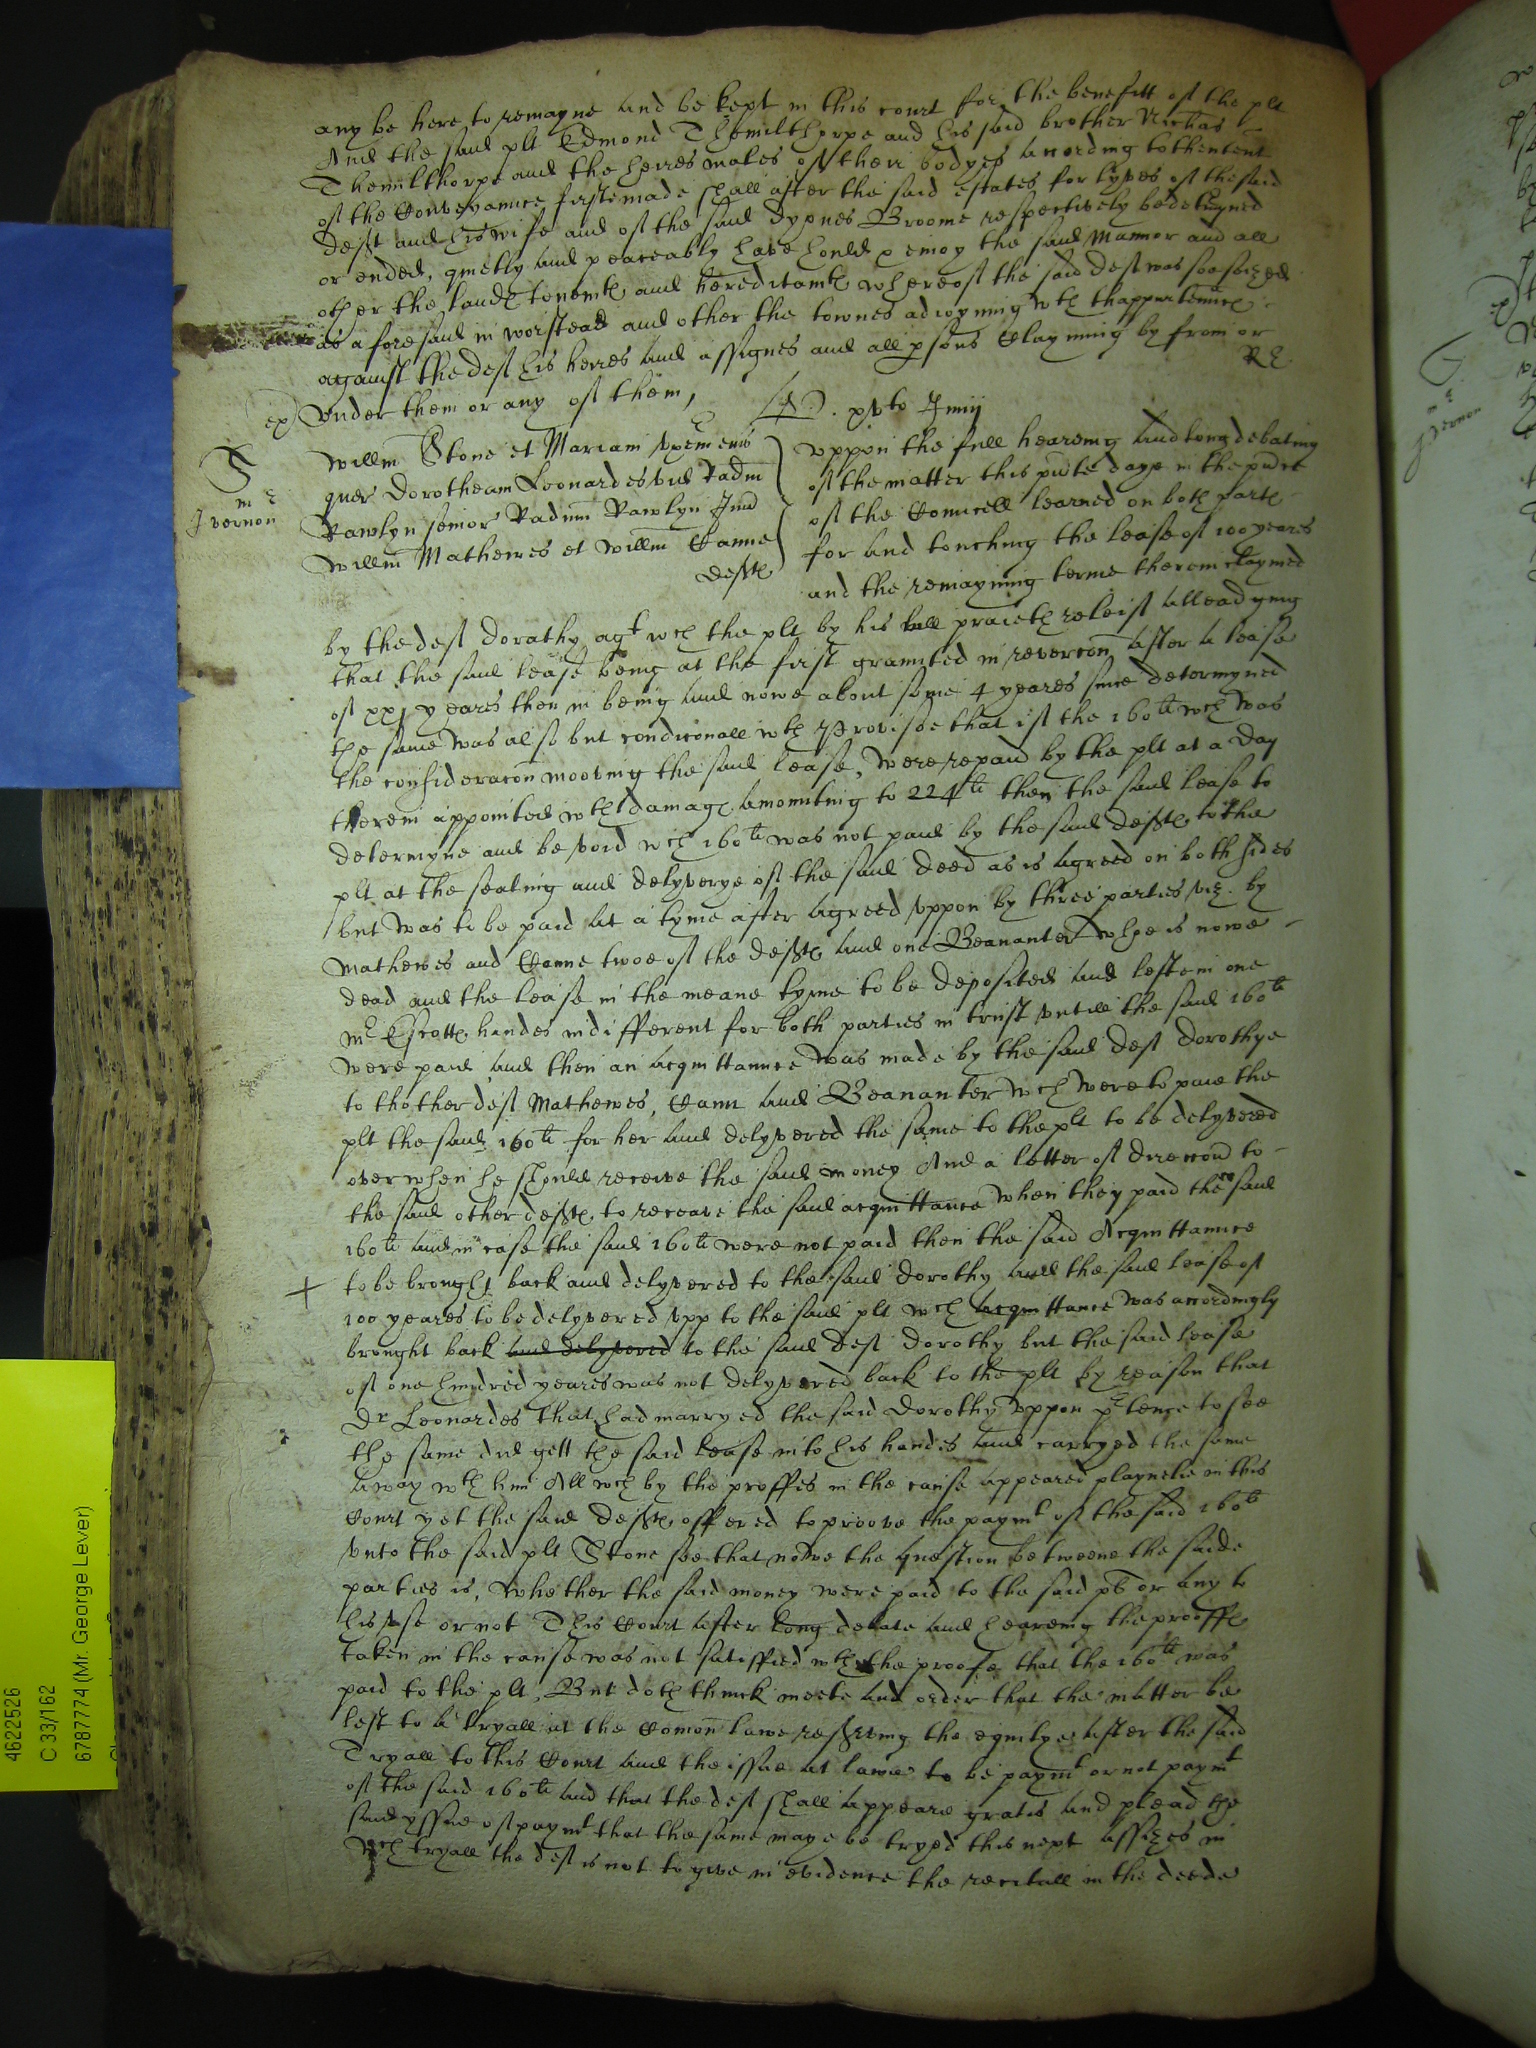 any be here to remayne and be kept in this court for the benefitt of the plt
And the said plt Edmond Themilthorpe and his said brother Nichas
Themilthorpe and the heires males of their bodyes according to thentent
of the Conveyannce firste made shall after the said estates for lyves of the said
deft and his wife and of the said Dyones Broome respectively be determyned
or ended, quietly and peaceably have hould & enioy the said Mannor and all
other the landes tenemtes and hereditamtes whereof the said deft was soe seized
as aforesaid in Worstead and other the townes adioyning wth thappurtennces
against the deft his heires and assignes and all psons Clayming by from or
Under them or any of them,
Re
xvto Junij
Willm Stone et Mariam uxem eius
quer Dorotheam Leonardes vid Radm
Rawlyn senior Radum Rawlyn Jun
Willm Mathewes et Willm Canne
defts
J Vernon
Uppon the full hearing and long debating
of the matter this pnte daye in the pnce
of the Councell learned on both partes
for and touching the lease of 100 yeares
and the remayning terme therein claymed
by the deft Dorathy agt wch the plt by his bill praieth releif alleadging
that the said lease being at the first graunted in revercon after a lease
of xxj yeares then in being and nowe about some 4 yeares since determyned
the same was also but condiconall wth Provisoe that if the 160li wch was
the consideracon mooving the said lease, were repaid by the plt at a day
therein appointed wth damages amounting to 224li then the said lease to
determyne and be void wch 160li was not paid by the said defts to the
plt at the sealing and delyverye of the said deed as is agreed on both sides
but was to be paid at a tyme after agreed uppon by three parties viz. by
Mathewes and Canne twoe of the defts and one Beananter whoe is nowe
dead and the lease in the meane tyme to be deposited and left in one
Mr Escottes handes indifferent for both parties in trust untill the said 160li
were paid and then an acquittannce was made by the said deft Dorothye
to thother deft Mathewes, Cann and Beananter wch were to paie the
plt the said 160li for her and delyvered the same to the plt to be delyvered
over when he should receive the said money And a letter of direccon to
the said other defts to receave the said acquittance when they paid the said
160li and in case the said 160li were not paid then the said Acquittannce
to be brought back and delyvered to the said Dorothy and the said lease of
100 yeares to be delyvered upp to the said plt wch acquittance was accordingly
brought back and delyvered to the said deft Dorothy but the said lease
of one hundred yeares was not delyvered back to the plt by reason that
Dr Leonardes that had marryed the said Dorothy uppon ptence to see
the same did gett the said lease into his handes and carryed the same
away wth him All wch by the prooffes in the cause appeared playnelie in this
Court yet the said defts offered to proove the paymt of the said 160li
unto the said plt Stone soe that nowe the question betweene the saide
parties is, whether the said money were paid to the said plt or any to
his use or not This Court after long debate and hearing the prooffes
taken in the cause was not satisfied wth the proofe that the 160li was
paid to the plt, But doth thinck meete and order that the matter be
left to a tryall at the Comon lawe reserving the equitye after the said
Tryall to this Court and the issue at lawe to be paymt or not paymt
of the said 160li and that the deft shall appeare gratis and plead the
said yssue of paymt that the same maye be tryed this next assizes in
wch tryall the deft is not to give in evidence the recitall in the deede
4622526
C 33/162
6787774 (Mr. George Lever)